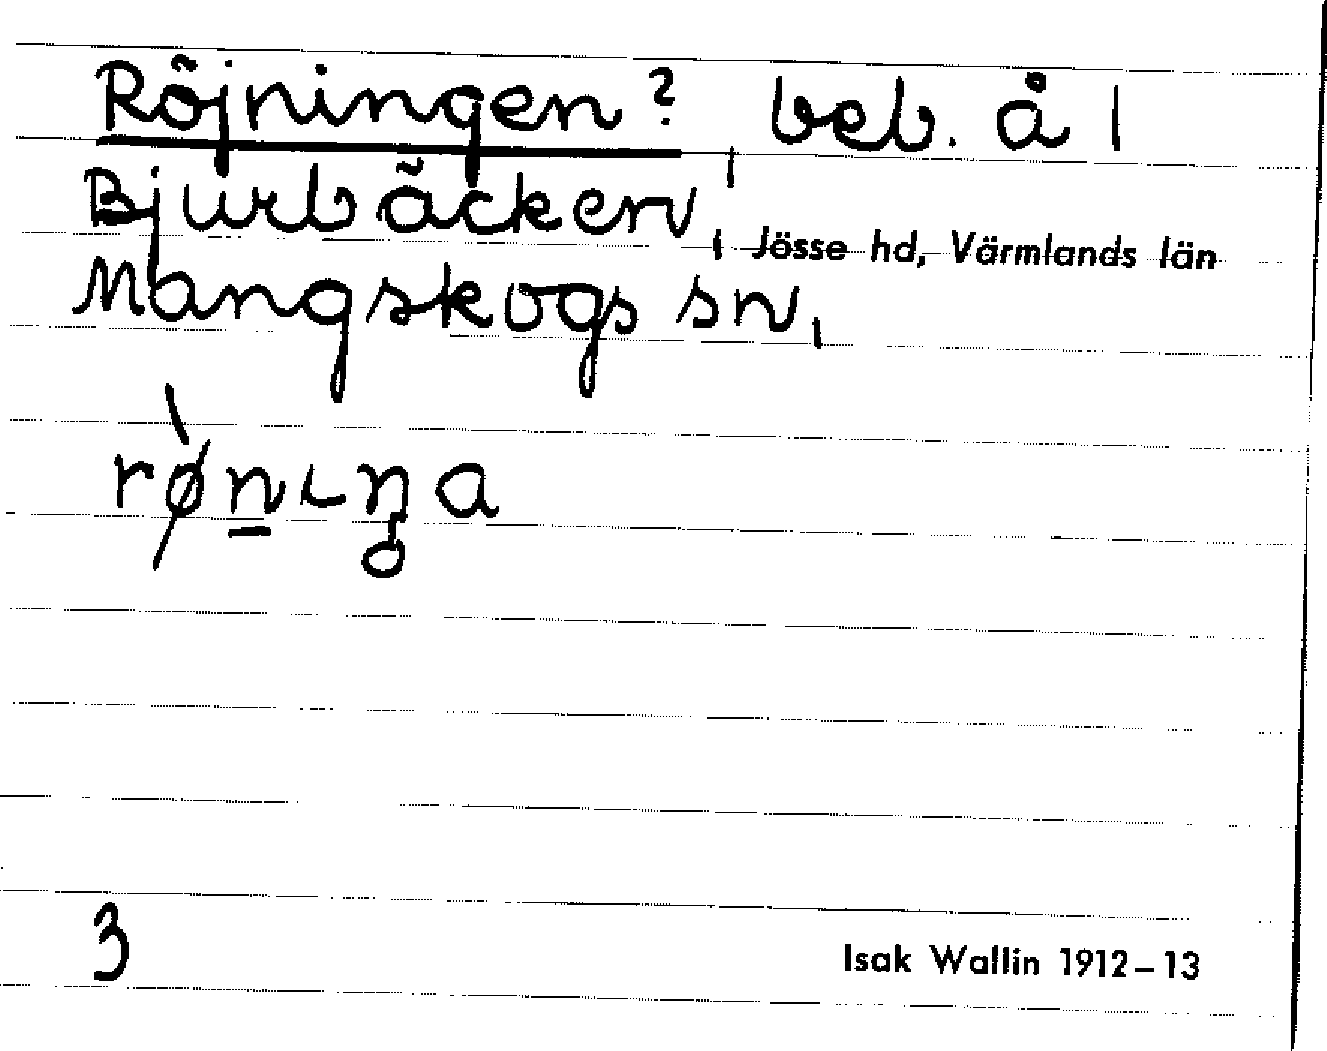 Röjningen?, beb. å 1
Bjurbäcken,
Mangskogs sn, Jösse hd, Värmlands län
rø̀nıŋa
3
Isak Wallin 1912–13